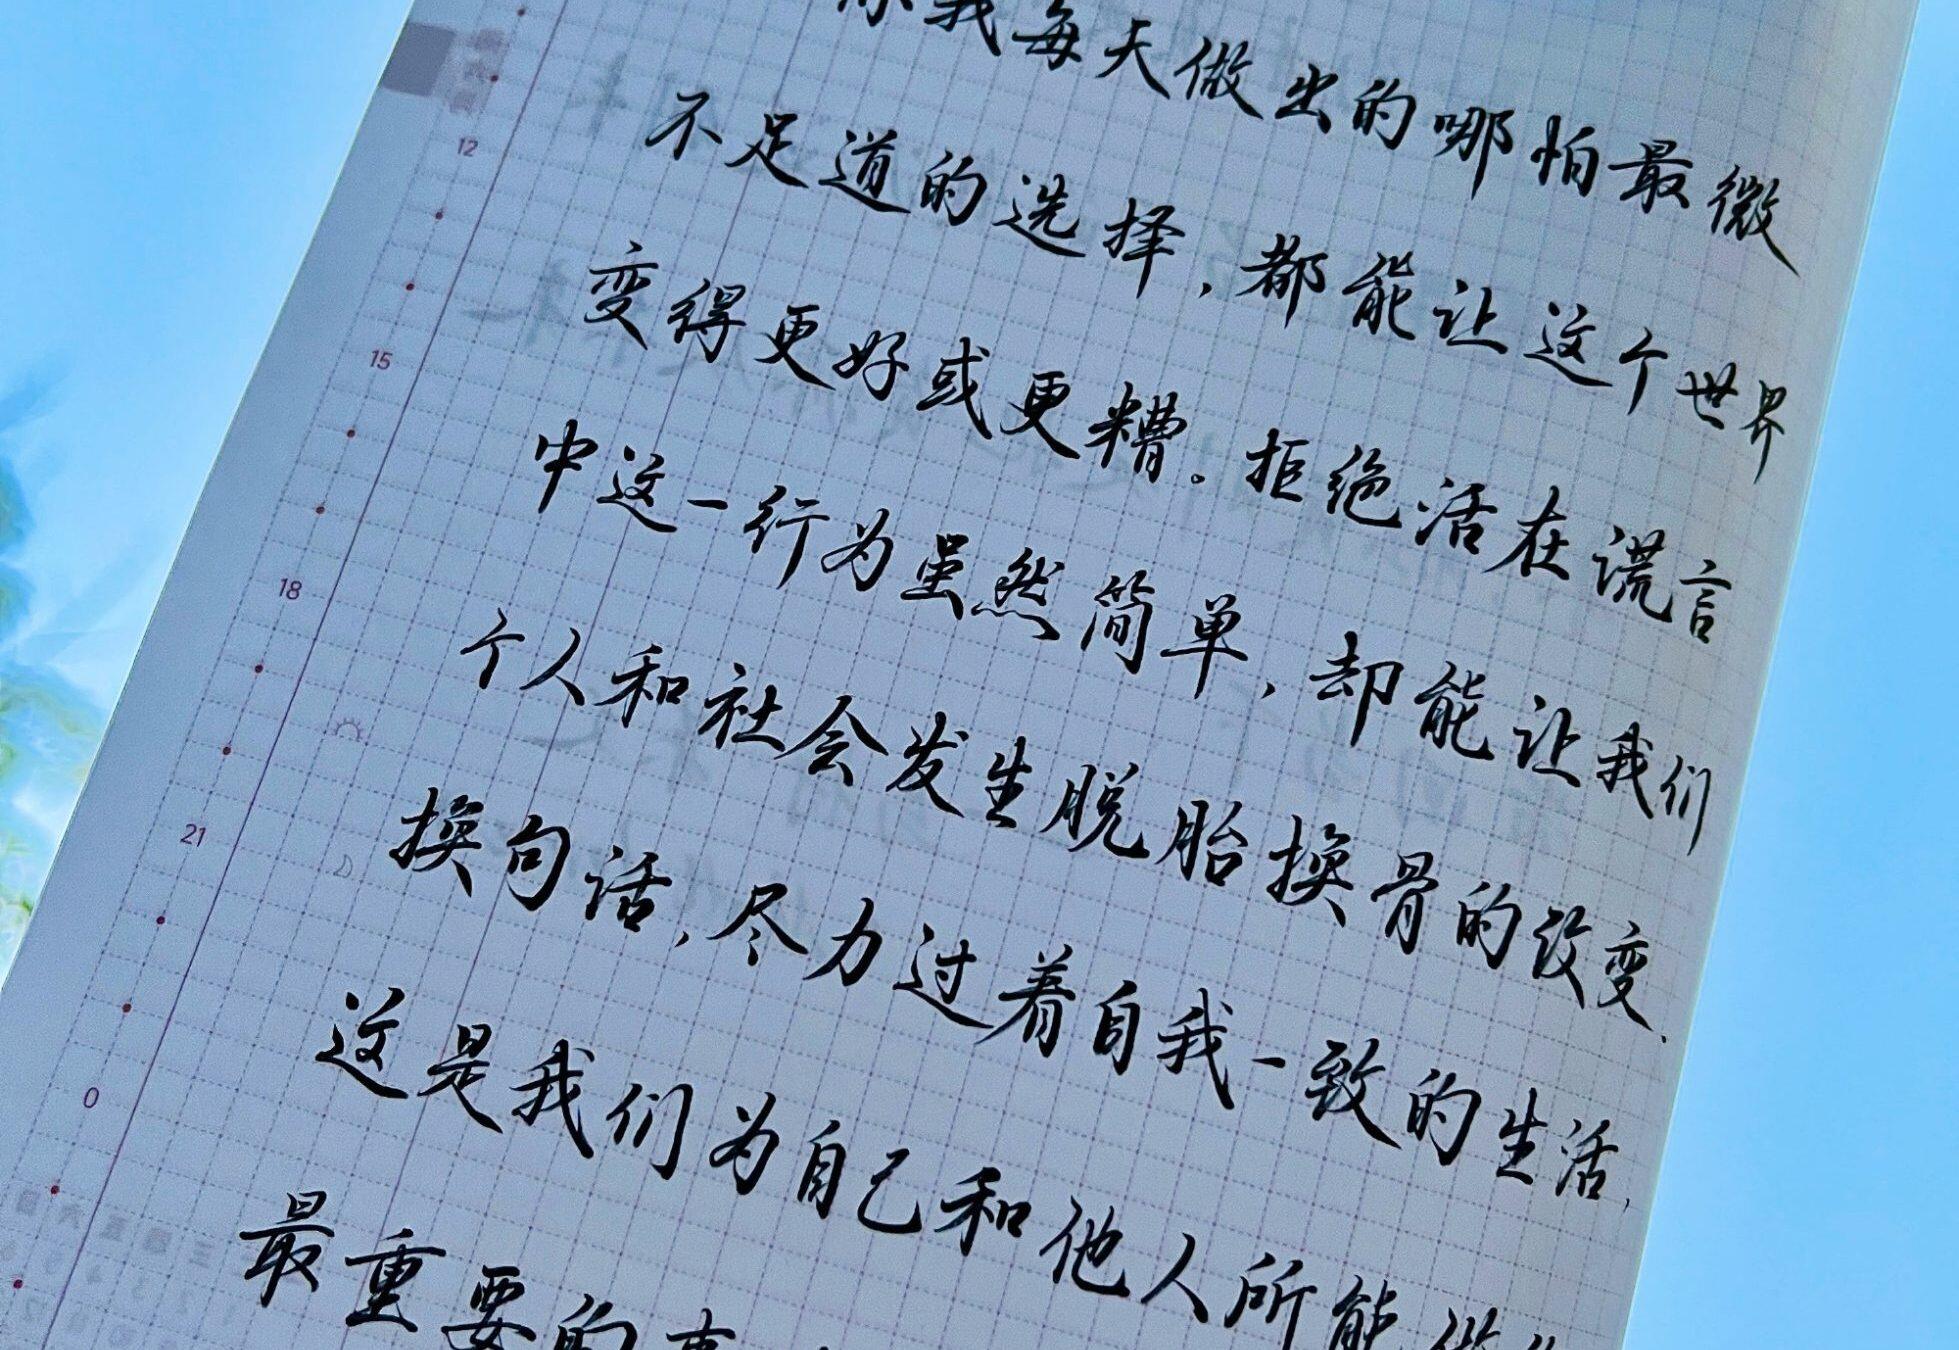 你我每天做出的哪怕最微
不足道的选择，都能让这个世界
变得更好或更糟。拒绝活在谎言
中这一行为虽然简单，却能让我们
个人和社会发生脱胎换骨的改变.
换句话，尽力过着自我一致的生活,
这是我们为自己和他人所能做
最重要的
12
15
18
21
0